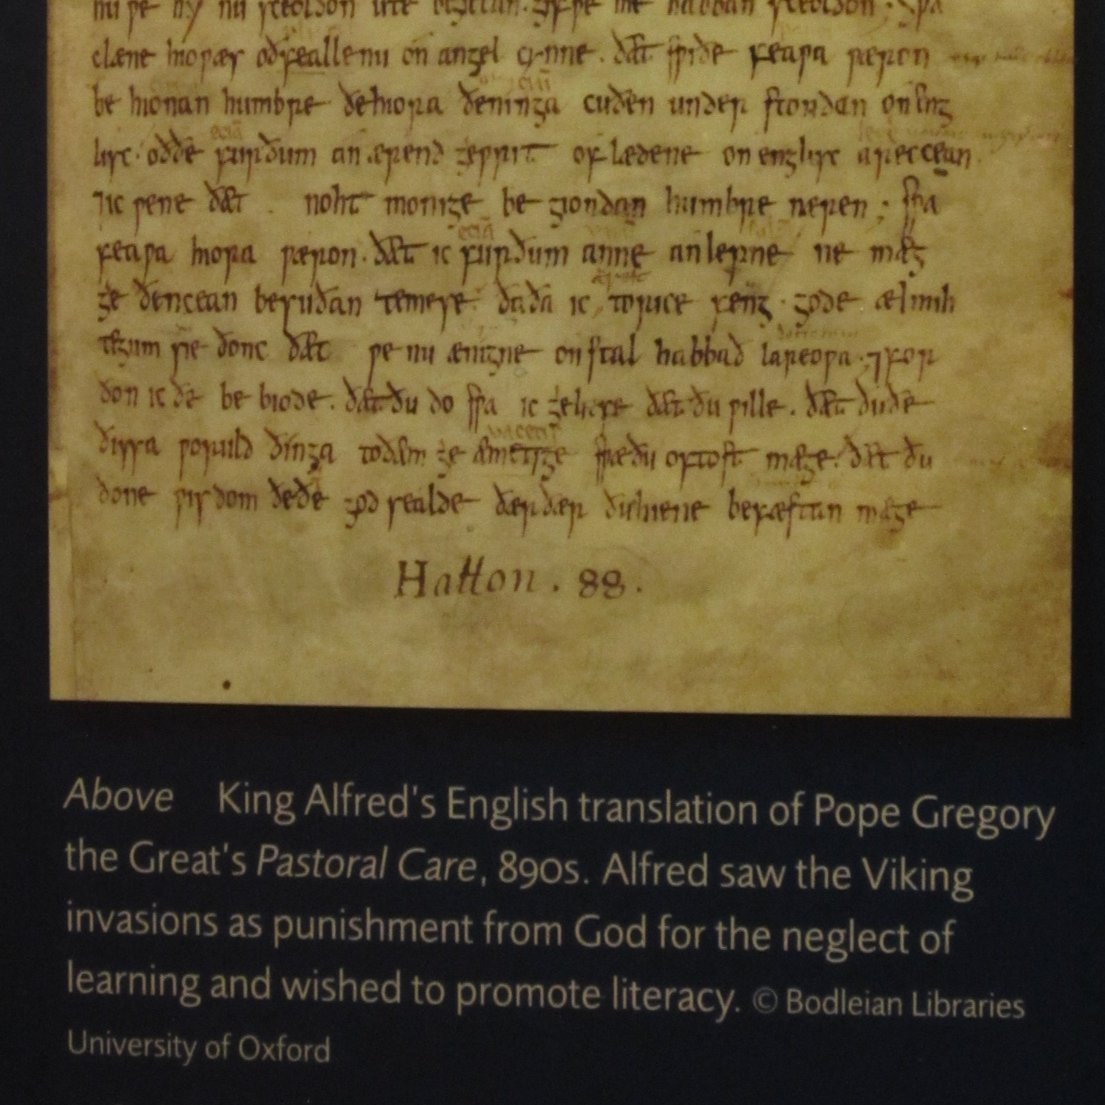 hi we hy nu sceoldon ute begietan. gif we hie habban sceoldon; Swa
clæne hio wæs oðfeallenu on angel cynne. ðæt swiðe feawa wæron
be hionan humbre ðe hiora ðeninga cuðen under stondan on eng
lisc. oððe furðum an ærend gewrit of lædene on englisc areccean
⁊ ic wene ðæt noht monige be giondan humbre næren; swa
feawa hiora wæron. ðæt ic furðum anne anlepne ne mæg
ge ðencean besuðan temese ða ða ic to rice feng. gode ælmih
tegum sie ðonc ðæt we nu ænigne on stal habbað lareowa; ⁊ for
ðon ic ðe be biode. ðæt ðu do swa ic geliefe ðæt ðu wille. ðæt ðu ðe
ðissa woruld ðinga to ðæm ge æmetige swæ ðu oftost mæge. ðæt ðu
ðone wisdom ðe ðe god sealde ðær ðær ðu hiene befæstan mæge
Hatton. 88.
Above King Alfred's English translation of Pope Gregory
the Great's Pastoral Care, 890s. Alfred saw the Viking
invasions as punishment from God for the neglect of
learning and wished to promote literacy. © Bodleian Libraries
University of Oxford